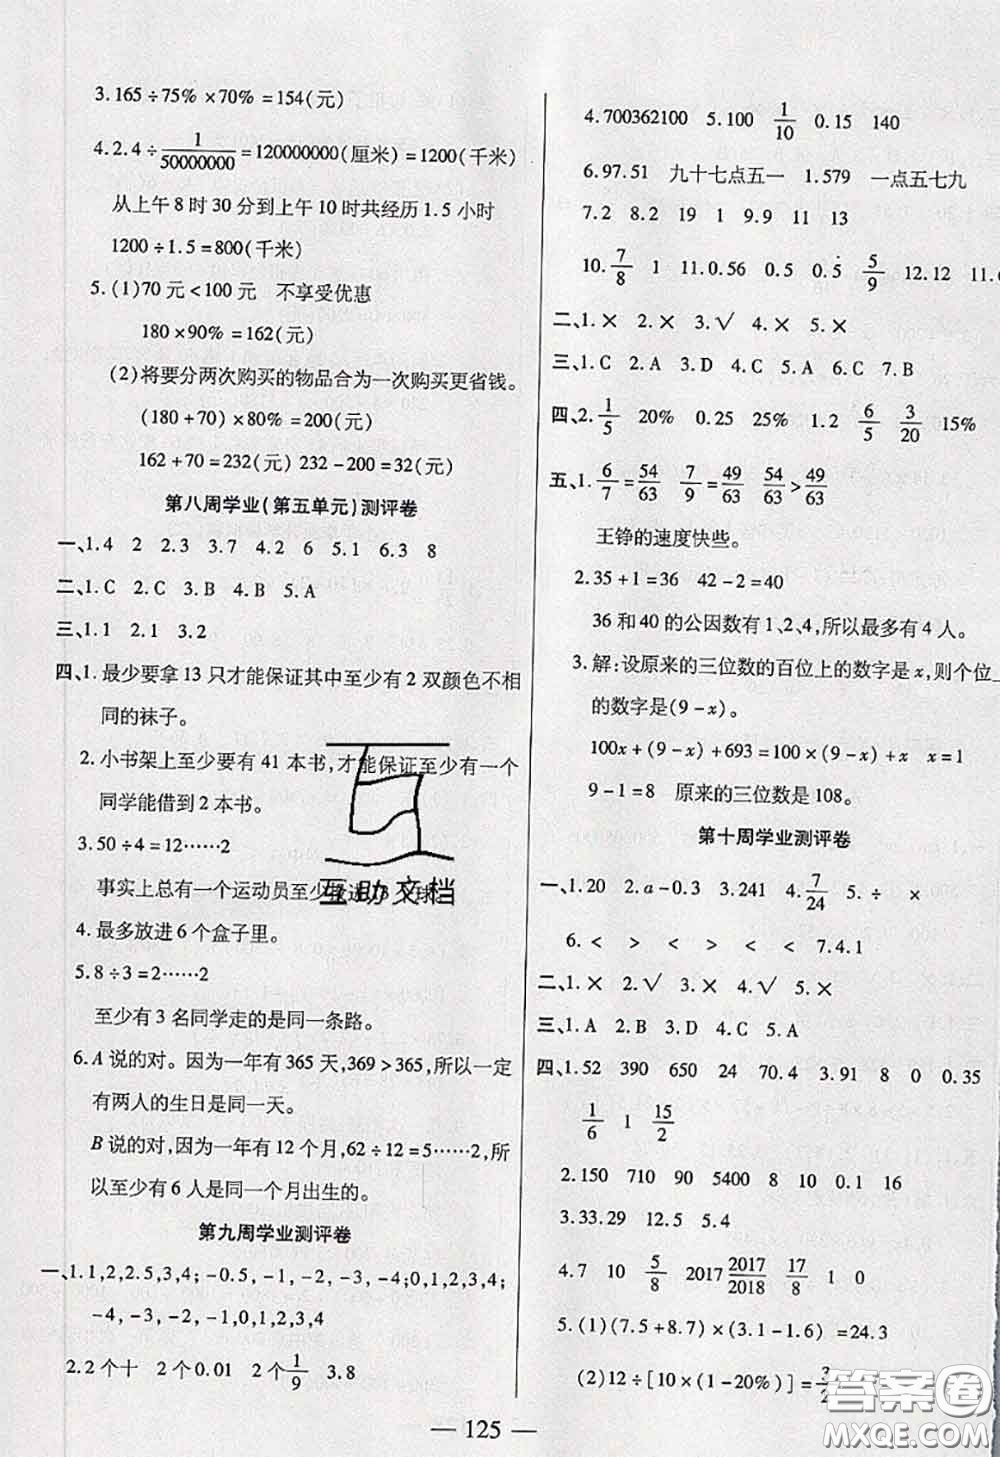 3.165÷75%×70%=154(元)
4.2.4÷1/50000000=120000000(厘米)=1200(千米)
从上午8时30分到上午10时共经历1.5小时
1200÷1.5=800(千米)
5.(1)70元<100元 不享受优惠
180×90%=162(元)
(2)将要分两次购买的物品合为一次购买更省钱。
(180+70)×80%=200(元)
162+70=232(元) 232-200=32(元)
第八周学业(第五单元)测评卷
一、1.4 2 2.3 3.7 4.2 6 5.1 6.3 8
二、1.C 2.C 3.B 4.B 5.A
三、1.1 2.1 3.2
四、1.最少要拿13只才能保证其中至少有2双颜色不相
同的袜子。
2.小书架上至少要有41本书,才能保证至少有一个
同学能借到2本书。
3.50÷4=12……2
事实上总有一个运动员至少投进13个球。
4.最多放进6个盒子里。
5.8÷3=2……2
至少有3名同学走的是同一条路。
6.A说的对。因为一年有365天,369>365,所以一定
有两人的生日是同一天。
B说的对,因为一年有12个月,62÷12=5……2,所
以至少有6人是同一个月出生的。
第九周学业测评卷
一、1.1,2,2.5,3,4;-0.5,-1,-2,-3,-4;0,1,2,3,4;
-4,-3,-2,-1,0,1,2,3,4
2.2个十 2个0.01 2个1/9 3.8
4.700362100 5.100 1/10 0.15 140
6.97.51 九十七点五一 1.579 一点五七九
7.2 8.2 19 1 9.9 11 13
10.7/8 1 11.0.56 0.5 0.5̇ 5/9 12.12 11.
二、1.× 2.× 3.√ 4.× 5.×
三、1.C 2.A 3.D 4.C 5.A 6.C 7.B
四、2.1/5 20% 0.25 25% 1.2 6/5 3/20 15%
五、1.6/7=54/63 7/9=49/63 54/63>49/63
王铮的速度快些。
2.35+1=36 42-2=40
36和40的公因数有1、2、4,所以最多有4人。
3.解:设原来的三位数的百位上的数字是x,则个位上
的数字是(9-x)。
100x+(9-x)+693=100×(9-x)+x x=1
9-1=8 原来的三位数是108。
第十周学业测评卷
一、1.20 2.a-0.3 3.241 4.7/24 5.÷ ×
6.< > > < < 7.4.1
二、1.× 2.√ 3.× 4.√ 5.×
三、1.A 2.B 3.D 4.C 5.A
四、1.52 390 650 24 70.4 3.91 8 0 0.35
1/6 1 15/2
2.150 710 90 5400 8 10 0.1 16
3.33.29 12.5 5.4
4.7 10 5/8 2017 2017/2018 17/8 1 0
5.(1)(7.5+8.7)×(3.1-1.6)=24.3
(2)12÷[10×(1-20%)]=3/2
— 125 —
互助文档
答案圈
MXQE.COM